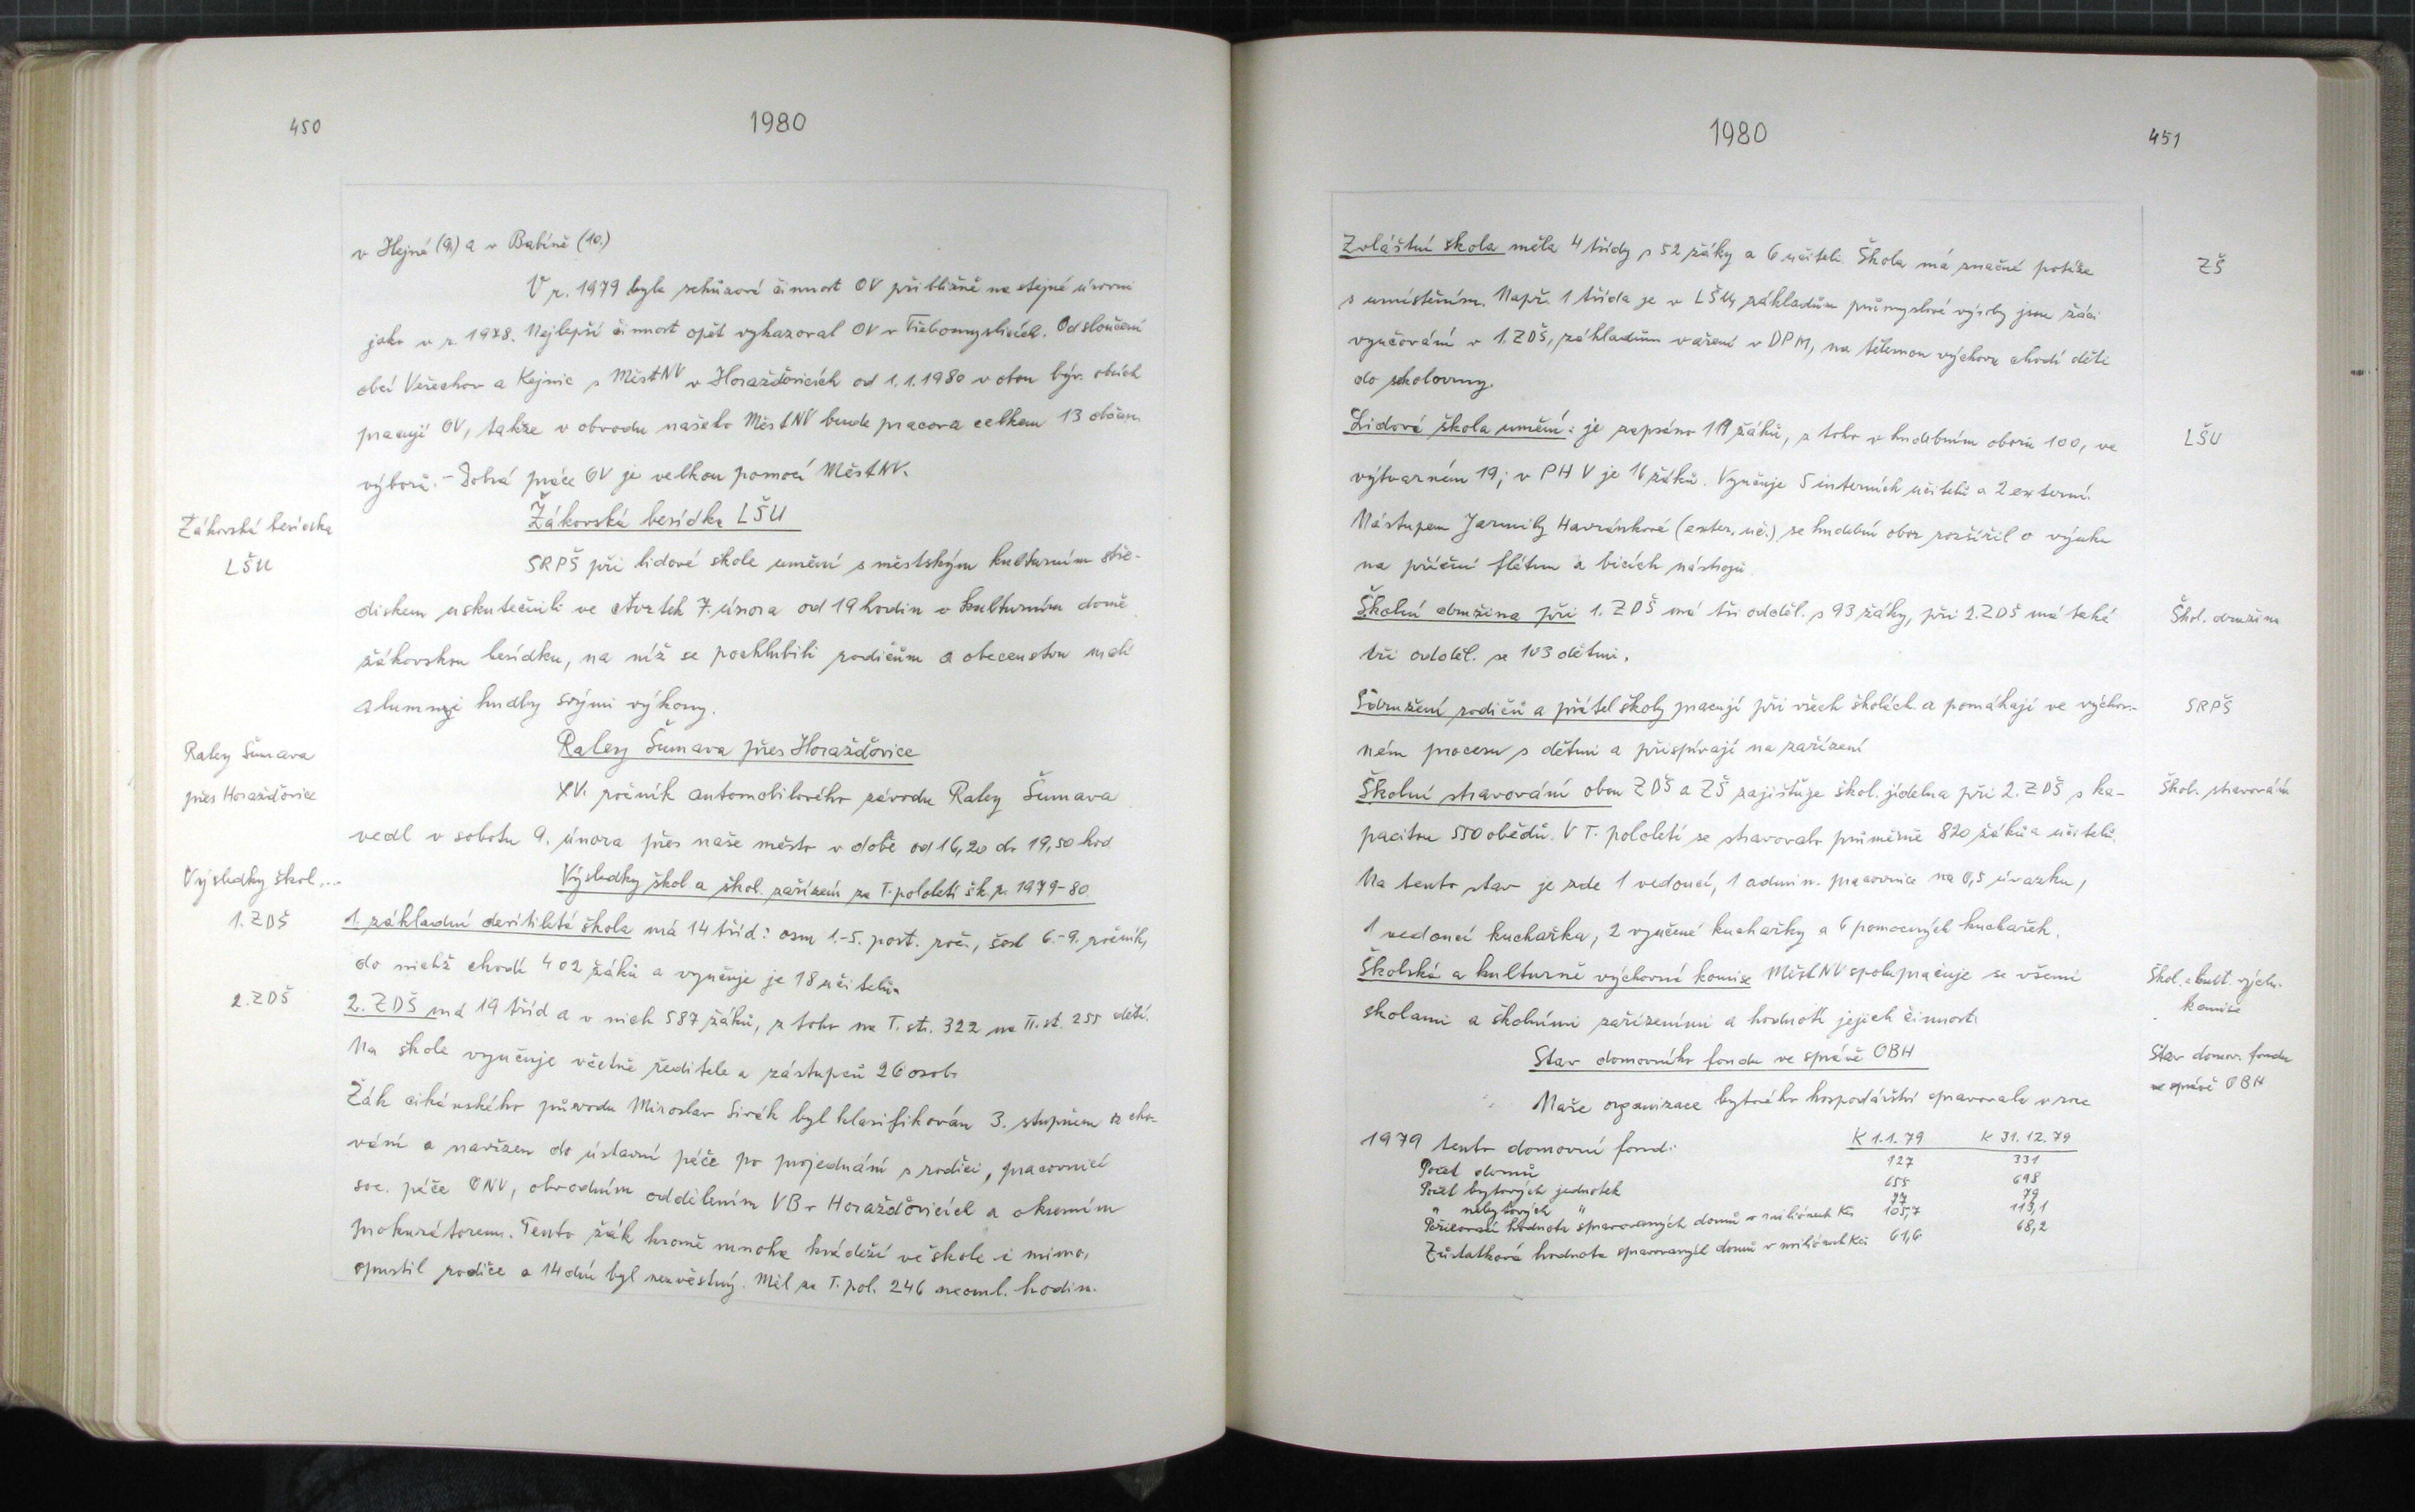 450
1980
v Hejné (9.) a v Babíně (10.)
V r. 1979 byla schůzová činnost OV přibližně na stejné úrovni
jako v r. 1978. Nejlepší činnost opět vykazoval OV v Třebomyslicích. Od sloučení
obcí Veřechov a Kejnic s MěstNV v Horažďovicích od 1.1.1980 v obou býv. obcích
pracují OV, takže v obvodu našeho MěstNV bude pracova celkem 13 občan.
výborů. - Dobrá práce OV je velkou pomocí MěstNV.
Žákovská besídka
LŠU
Žákovská besídka LŠU
SRPŠ při lidové škole umění s městským kulturním stře-
diskem uskutečnili ve čtvrtek 7. února od 19 hodin v kulturním domě
žákovskou besídku, na níž se pochlubili rodičům a obecenstvu malí
alumni hudby svými výkony.
Raley Šumava
přes Horažďovice
Raley Šumava přes Horažďovice
XV. ročník automobilového závodu Raley Šumava
vedl v sobotu 9. února přes naše město v době od 16,20 do 19,50 hod
Výsledky škol...
Výsledky škol a škol. zařízení za I. pololetí šk. r. 1979-80
1. ZDŠ
1. základní devítiletá škola má 14 tříd: osm 1.-5. post. roč., šest 6.-9. ročník,
do nichž chodí 402 žáků a vyučuje je 18 učitelů.
2. ZDŠ
2. ZDŠ má 19 tříd a v nich 587 žáků, z toho na I. st. 322 na II. st. 255 dětí.
Na škole vyučuje včetně ředitele a zástupců 26 osob.
Žák cikánského původu Miroslav Sivák byl klasifikován 3. stupněm z cho-
vání a nařízen do ústavní péče po projednání s rodiči, pracovnicí
soc. péče ONV, obvodním oddělením VB v Horažďovicích a okresním
prokurátorem. Tento žák kromě mnoha krádeží ve škole i mimo,
opustil rodiče a 14 dní byl nezvěstný. Měl za I. pol. 246 neoml. hodin.
1980
451
Zvláštní škola měla 4 třídy s 52 žáky a 6 učiteli. Škola má značné potíže
ZŠ
s umístěním. Např. 1 třída je v LŠU, základům průmyslové výroby jsou žáci
vyučováni v 1. ZDŠ, základům vaření v DPM, na tělesnou výchovu chodí děti
do sokolovny.
Lidová škola umění: je zapsáno 119 žáků, z toho v hudebním oboru 100, ve
LŠU
výtvarném 19; v PHV je 16 žáků. Vyučuje 5 interních učitelů a 2 externí.
Nástupem Jarmily Havránkové (exter. uč.) se hudební obor rozšířil o výuku
na příční flétnu a bicích nástrojů.
Školní družina při 1. ZDŠ má tři odděl. s 93 žáky, při 2. ZDŠ má také
Škol. družina
tři odděl. se 103 dětmi.
Sdružení rodičů a přátel školy pracují při všech školách a pomáhají ve výchov-
SRPŠ
ném procesu s dětmi a přispívají na zařízení
Školní stravování obou ZDŠ a ZŠ zajišťuje škol. jídelna při 2. ZDŠ s ka-
Škol. stravování
pacitou 550 obědů. V I. pololetí se stravovalo průměrně 820 žáků a učitelů.
Na tento stav je zde 1 vedoucí, 1 admin. pracovnice na 0,5 úvazku,
1 vedoucí kuchařka, 2 vyučené kuchařky a 6 pomocných kuchařek.
Školská a kulturně výchovná komise MěstNV spolupracuje se všemi
Škol. a kult. vých.
komise
školami a školními zařízeními a hodnotí jejich činnost.
Stav domovního fondu ve správě OBH
Stav domov. fondu
ve správě OBH
Naše organizace bytového hospodářství spravovala v roce
1979 tento domovní fond:
K 1.1.79 K 31.12.79
Počet domů 127 331
Počet bytových jednotek 655 698
" nebytových " 77 79
Pořizovací hodnota spravovaných domů v miliónech Kčs 105,7 113,1
Zůstatková hodnota spravovaných domů v miliónech Kčs 61,6 68,2